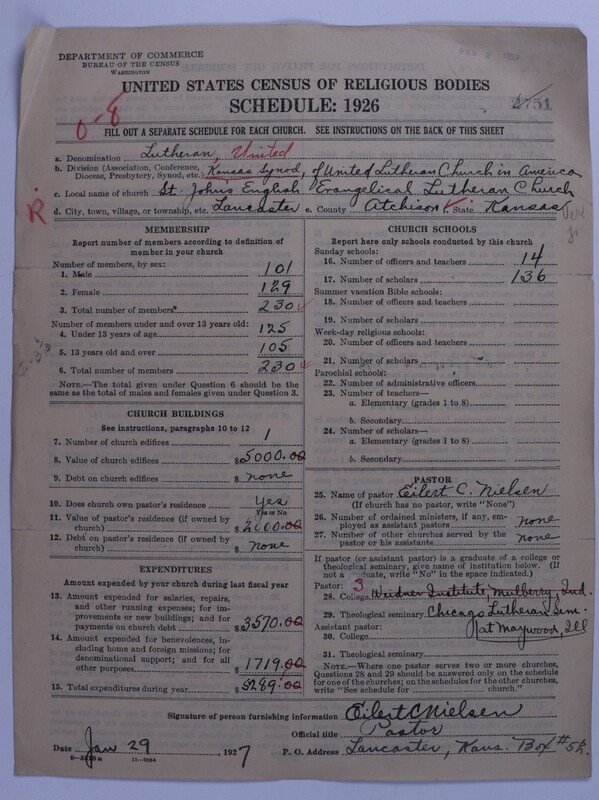 DEPARTMENT OF COMMERCE
BUREAU OF THE CENSUS
WASHINGTON
UNITED STATES CENSUS OF RELIGIOUS BODIES
SCHEDULE: 1926
0-8
FILL OUT A SEPARATE SCHEDULE FOR EACH CHURCH. SEE INSTRUCTIONS ON THE BACK OF THIS SHEET
a. Denomination Lutheran, United
b. Division (Association, Conference, Diocese, Presbytery, Synod, etc.) Kansas Synod, of United Lutheran Church in America
c. Local name of church St. John's English Evangelical Lutheran Church
R
d. City, town, village, or township, etc. Lancaster e. County Atchison f. State Kansas
MEMBERSHIP
Report number of members according to definition of
member in your church
Number of members, by sex:
1. Male 101
2. Female 129
3. Total number of members* 230
Number of members under and over 13 years old:
4. Under 13 years of age 125
5. 13 years old and over 105
6. Total number of members 230
NOTE.—The total given under Question 6 should be
same as the total of males and females given under Question 3.
CHURCH BUILDINGS
See instructions, paragraphs 10 to 12
7. Number of church edifices 1
8. Value of church edifices $5000.00
9. Debt on church edifices $ none
10. Does church own pastor's residence Yes
Yes or No
11. Value of pastor's residence (if owned by
church) $2000.00
12. Debt on pastor's residence (if owned by
church) $ none
EXPENDITURES
Amount expended by your church during last fiscal year
13. Amount expended for salaries, repairs,
and other running expenses; for im-
provements or new buildings; and for
payments on church debt $3570.00
14. Amount expended for benevolences,
including home and foreign missions; for
denominational support; and for all
other purposes $1719.00
15. Total expenditures during year $5289.00
CHURCH SCHOOLS
Report here only schools conducted by this church
Sunday schools:
16. Number of officers and teachers 14
17. Number of scholars 136
Summer vacation Bible schools:
18. Number of officers and teachers
19. Number of scholars
Week-day religious schools:
20. Number of officers and teachers
21. Number of scholars
Parochial schools:
22. Number of administrative officers
23. Number of teachers—
a. Elementary (grades 1 to 8)
b. Secondary
24. Number of scholars—
a. Elementary (grades 1 to 8)
b. Secondary
PASTOR
25. Name of pastor Eilert C. Nielsen
(If church has no pastor, write "None")
26. Number of ordained ministers, if any, em-
ployed as assistant pastors none
27. Number of other churches served by the
pastor or his assistants none
If pastor (or assistant pastor) is a graduate of a college or
theological seminary, give name of institution below. (If
not a graduate, write "No" in the space indicated.)
Pastor: 3
28. College Weidner Institute, Mulberry, Ind.
29. Theological seminary Chicago Lutheran Sem.
Assistant pastor: at Maywood, Ill
30. College
31. Theological seminary
NOTE.—Where one pastor serves two or more churches,
Questions 28 and 29 should be answered only on the schedule
for one of the churches; on the schedules for the other churches,
write "See schedule for church."
Signature of person furnishing information Eilert C Nielsen
Official title Pastor
Date Jan 29 1927 P. O. Address Lancaster, Kans. Box #54